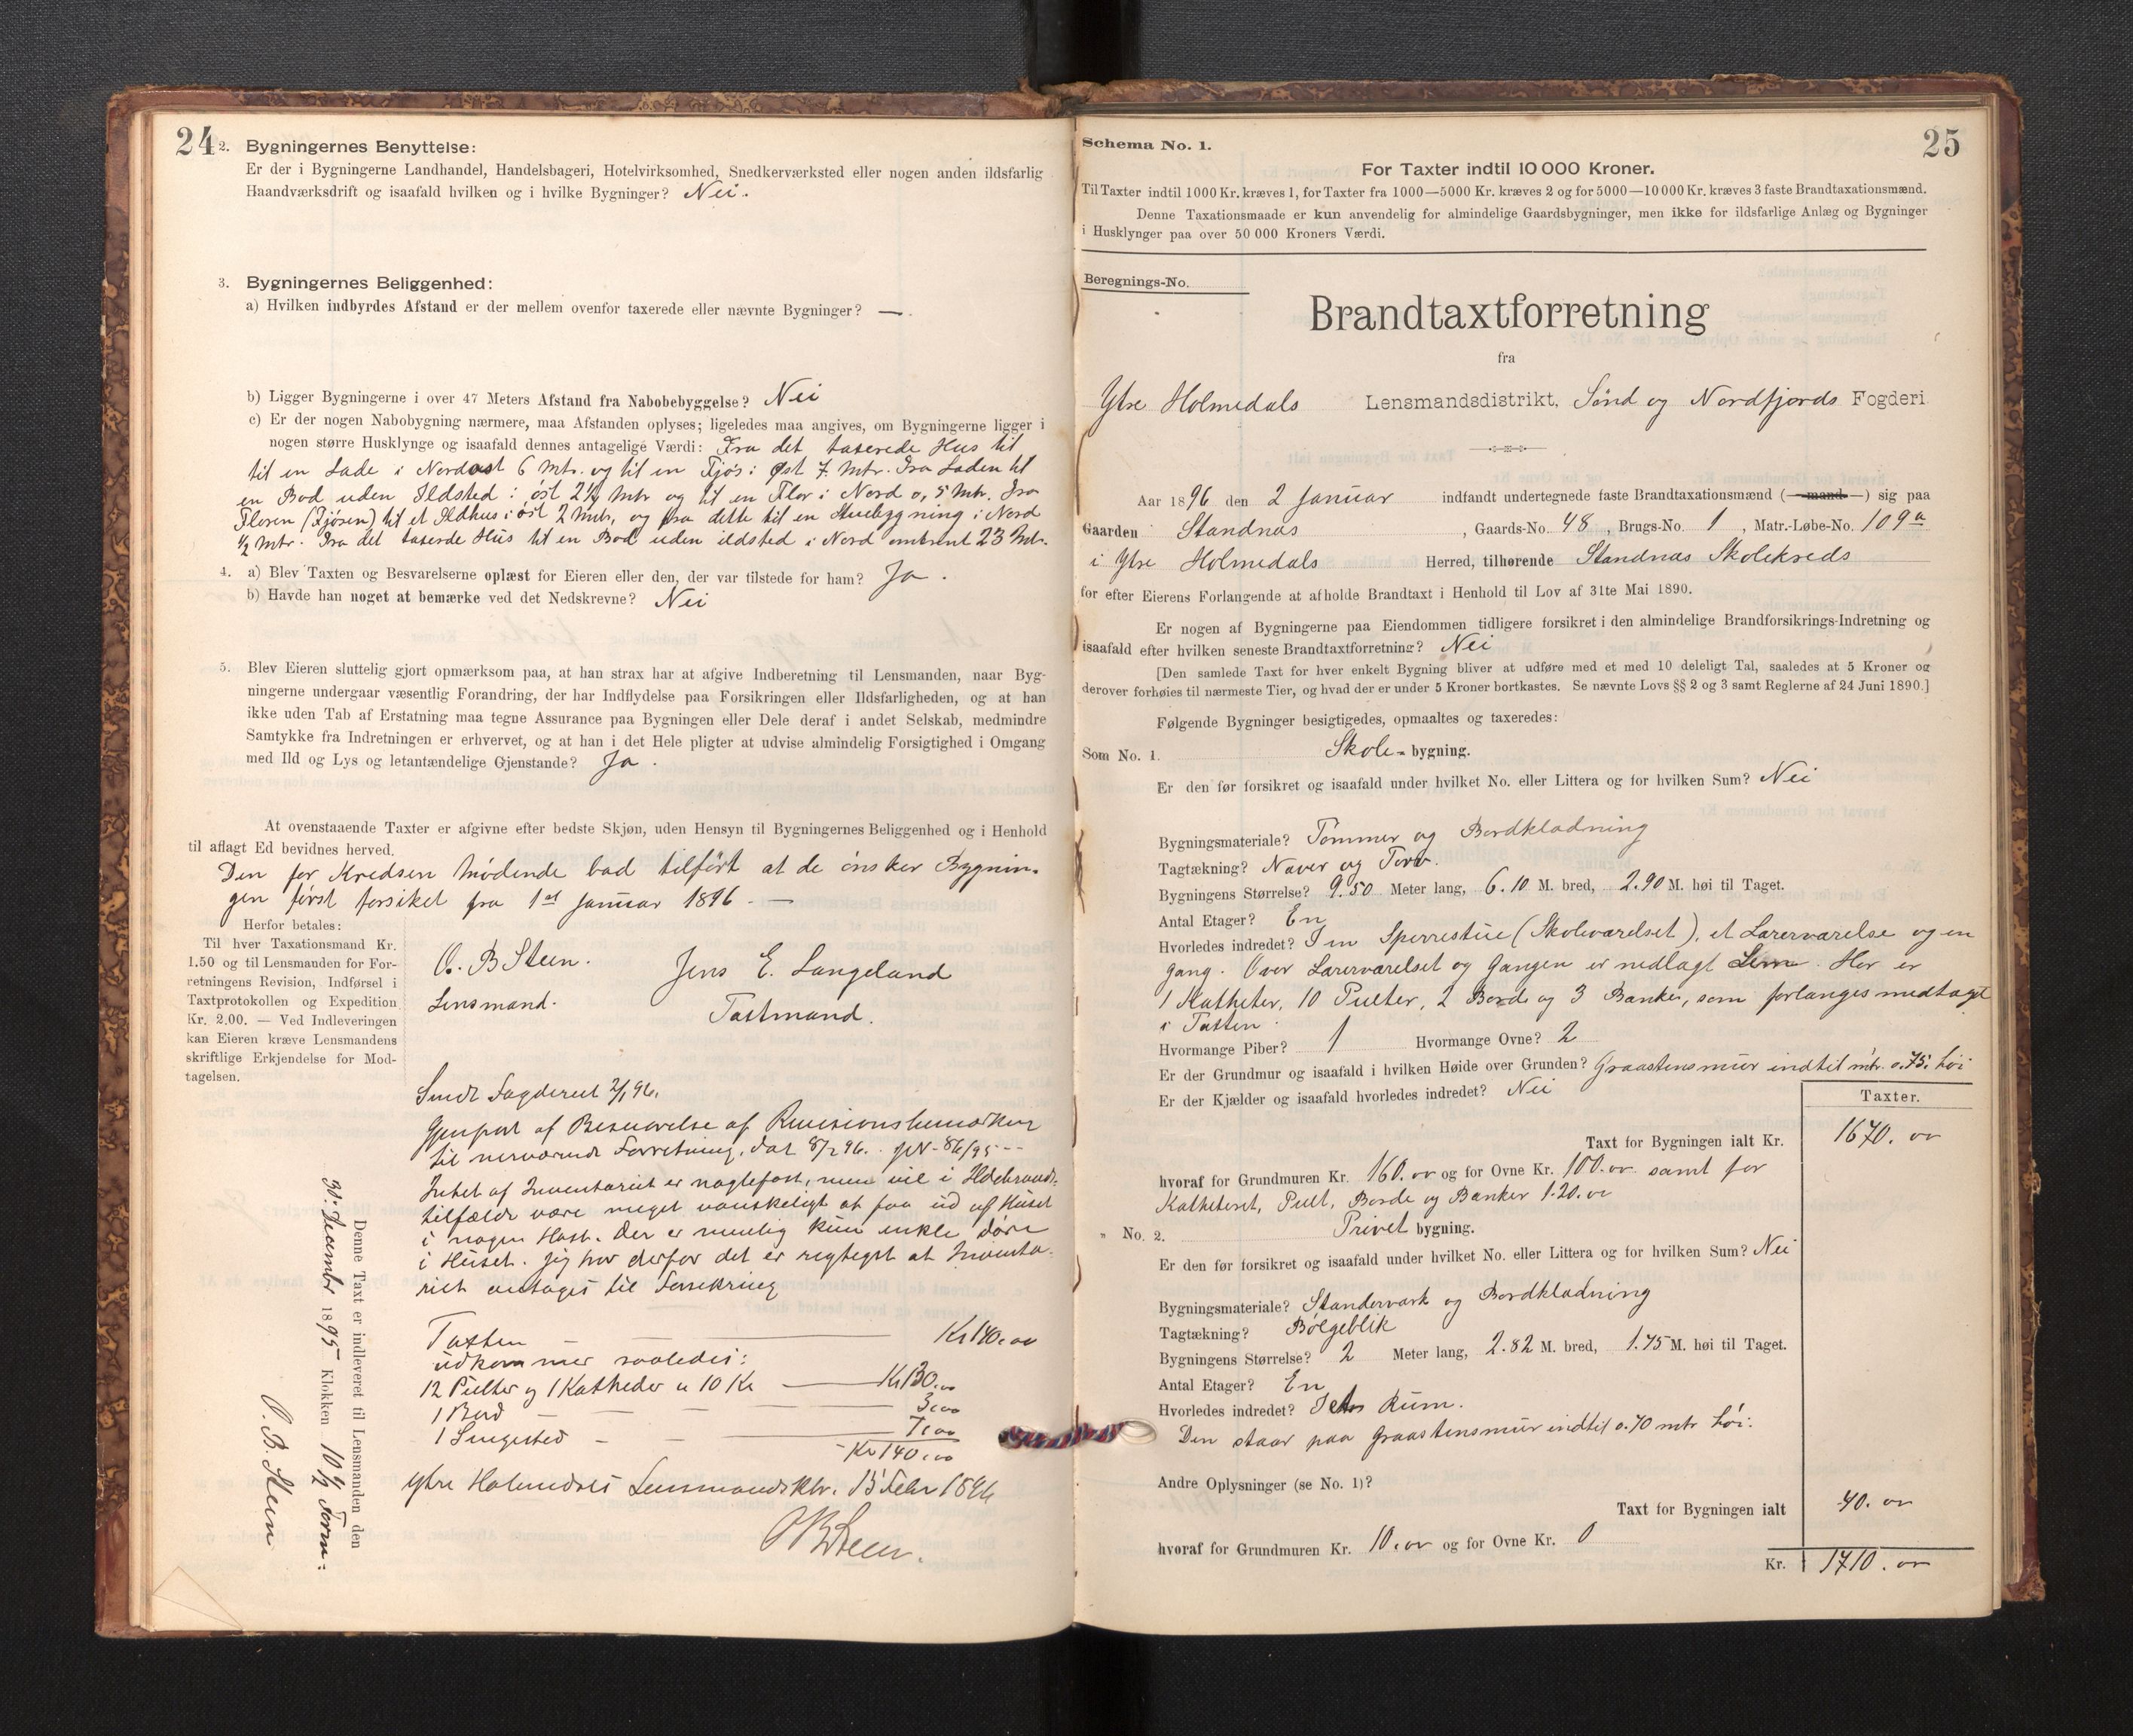 24
2. Bygningernes Benyttelse:
Er der i Bygningerne Landhandel, Handelsbageri, Hotelvirksomhed, Snedkerværksted eller nogen anden ildsfarlig
Haandværksdrift og isaafald hvilken og i hvilke Bygninger? Nei.
3. Bygningernes Beliggenhed:
a) Hvilken indbyrdes Afstand er der mellem ovenfor taxerede eller nævnte Bygninger? —.
b) Ligger Bygningerne i over 47 Meters Afstand fra Nabobebyggelse? Nei
c) Er der nogen Nabobygning nærmere, maa Afstanden oplyses; ligeledes maa angives, om Bygningerne ligger i
nogen større Husklynge og isaafald dennes antagelige Værdi: Fra det taxerede Hus til
til en Lade i Nordost 6 Mtr. og til en Fjøs i Øst 7 Mtr. Fra Laden til
en Bod uden Ildsted i öst 2½ Mtr og til en Flor i Nord 0,5 Mtr. Fra
Floren (Fjøsen) til et Ildhus i öst 2 Mtr, og fra dette til en Stuebygning i Nord
½ Mtr. Fra det taxerde Hus til en Bod uden ildsted i Nord omtrent 23 Mtr.
4. a) Blev Taxten og Besvarelserne oplæst for Eieren eller den, der var tilstede for ham? Ja.
b) Havde han noget at bemærke ved det Nedskrevne? Nei
5. Blev Eieren sluttelig gjort opmærksom paa, at han strax har at afgive Indberetning til Lensmanden, naar Byg-
ningerne undergaar væsentlig Forandring, der har Indflydelse paa Forsikringen eller Ildsfarligheden, og at han
ikke uden Tab af Erstatning maa tegne Assurance paa Bygningen eller Dele deraf i andet Selskab, medmindre
Samtykke fra Indretningen er erhvervet, og at han i det Hele pligter at udvise almindelig Forsigtighed i Omgang
med Ild og Lys og letantændelige Gjenstande? Ja.
At ovenstaaende Taxter er afgivne efter bedste Skjøn, uden Hensyn til Bygningernes Beliggenhed og i Henhold
til aflagt Ed bevidnes herved.
Den for Kredsen Mødende bad tilført at de önsker Bygnin-
gen först forsikret fra 1st Januar 1896. —
Herfor betales:
Til hver Taxationsmand Kr.
1.50 og til Lensmanden for For-
retningens Revision, Indførsel i
Taxtprotokollen og Expedition
Kr. 2,00. — Ved Indleveringen
kan Eieren kræve Lensmandens
skriftlige Erkjendelse for Mod-
tagelsen.
O. B Steen.
Lensmand.
Jens E. Langeland
Taxtmand.
Sendt Fogderiet 2/1 96.
Gjenpart af Besvarelse af Revisionsbemærkning
til nærværende Forretning, dat 8/2 96. JN 86/95 --
Intet af Inventariet er naglefast, men vil i Ildebrands-
tilfælde være meget vanskeligt at faa ud af Huset
i nogen Hast. Der er nemlig kun enkle döre
i Huset. Jeg tror derfor det er rigtigst at Inventa-
riet antages til Forsikring
Taxten — Kr 140.00
udkommer saaledes:
12 Pulter og 1 Katheder a 10 Kr — Kr 130.00
1 Bord — 3.00
1 Sengested — 7.00
Kr 140.00
Ytre Holmedals Lensmandsktr. 15 Febr 1896
OBSteen.
Denne Taxt er indleveret til Lensmanden den
30. December 1895 Klokken 10½ Form.
O. B. Steen
25
Schema No. 1.
For Taxter indtil 10 000 Kroner.
Til Taxter indtil 1000 Kr. kræves 1, for Taxter fra 1000—5000 Kr. kræves 2 og for 5000—10 000 Kr. kræves 3 faste Brandtaxationsmænd.
Denne Taxationsmaade er kun anvendelig for almindelige Gaardsbygninger, men ikke for ildsfarlige Anlæg og Bygninger
i Husklynger paa over 50 000 Kroners Værdi.
Beregnings-No.
Brandtaxtforretning
fra
Ytre Holmedals Lensmandsdistrikt, Sönd og Nordfjords Fogderi
Aar 1896 den 2 Januar indfandt undertegnede faste Brandtaxationsmænd (—mand—) sig paa
Gaarden Standnæs, Gaards-No. 48, Brugs-No. 1, Matr.-Løbe-No. 109a
i Ytre Holmedals Herred, tilhørende Standnæs Skolekreds
for efter Eierens Forlangende at afholde Brandtaxt i Henhold til Lov af 31te Mai 1890.
Er nogen af Bygningerne paa Eiendommen tidligere forsikret i den almindelige Brandforsikrings-Indretning og
isaafald efter hvilken seneste Brandtaxtforretning? Nei
[Den samlede Taxt for hver enkelt Bygning bliver at udføre med et med 10 deleligt Tal, saaledes at 5 Kroner og
derover forhøies til nærmeste Tier, og hvad der er under 5 Kroner bortkastes. Se nævnte Lovs §§ 2 og 3 samt Reglerne af 24 Juni 1890.]
Følgende Bygninger besigtigedes, opmaaltes og taxeredes:
Som No. 1. Skole-bygning.
Er den før forsikret og isaafald under hvilket No. eller Littera og for hvilken Sum? Nei
Bygningsmateriale? Tömmer og Bordklædning
Tagtækning? Næver og Torv.
Bygningens Størrelse? 9.50 Meter lang, 6.10 M. bred, 2.90 M. høi til Taget.
Antal Etager? En
Hvorledes indredet? I en Sperrestue (Skoleværelset), et Lærerværelse og en
Gang. Over Lærerværelset og Gangen er nedlagt Lem. Her er
1 Katheter, 10 Pulter, 2 Bord og 3 Bænker, som forlanges medtaget
i Taxten.
Hvormange Piber? 1 Hvormange Ovne? 2
Er der Grundmur og isaafald i hvilken Høide over Grunden? Graastensmur indtil mtr. 0.75. höi
Er der Kjælder og isaafald hvorledes indredet? Nei
Taxter.
Taxt for Bygningen ialt Kr. 1670.00
hvoraf for Grundmuren Kr. 160.00 og for Ovne Kr. 100.00 samt for
Katheteret, Pult, Borde og Bænker 120.00
" No. 2. Privet bygning.
Er den før forsikret og isaafald under hvilket No. eller Littera og for hvilken Sum? Nei
Bygningsmateriale? Standerværk og Bordklædning
Tagtækning? Bölgeblik
Bygningens Størrelse? 2 Meter lang, 2.82 M. bred, 1.75 M. høi til Taget.
Antal Etager? En
Hvorledes indredet? I Rum.
Den staar paa Graastensmur indtil 0.70 mtr höi.
Andre Oplysninger (se No. 1)?
Taxt for Bygningen ialt 40.00
hvoraf for Grundmuren Kr. 10.00 og for Ovne Kr. 0
Kr. 1710.00